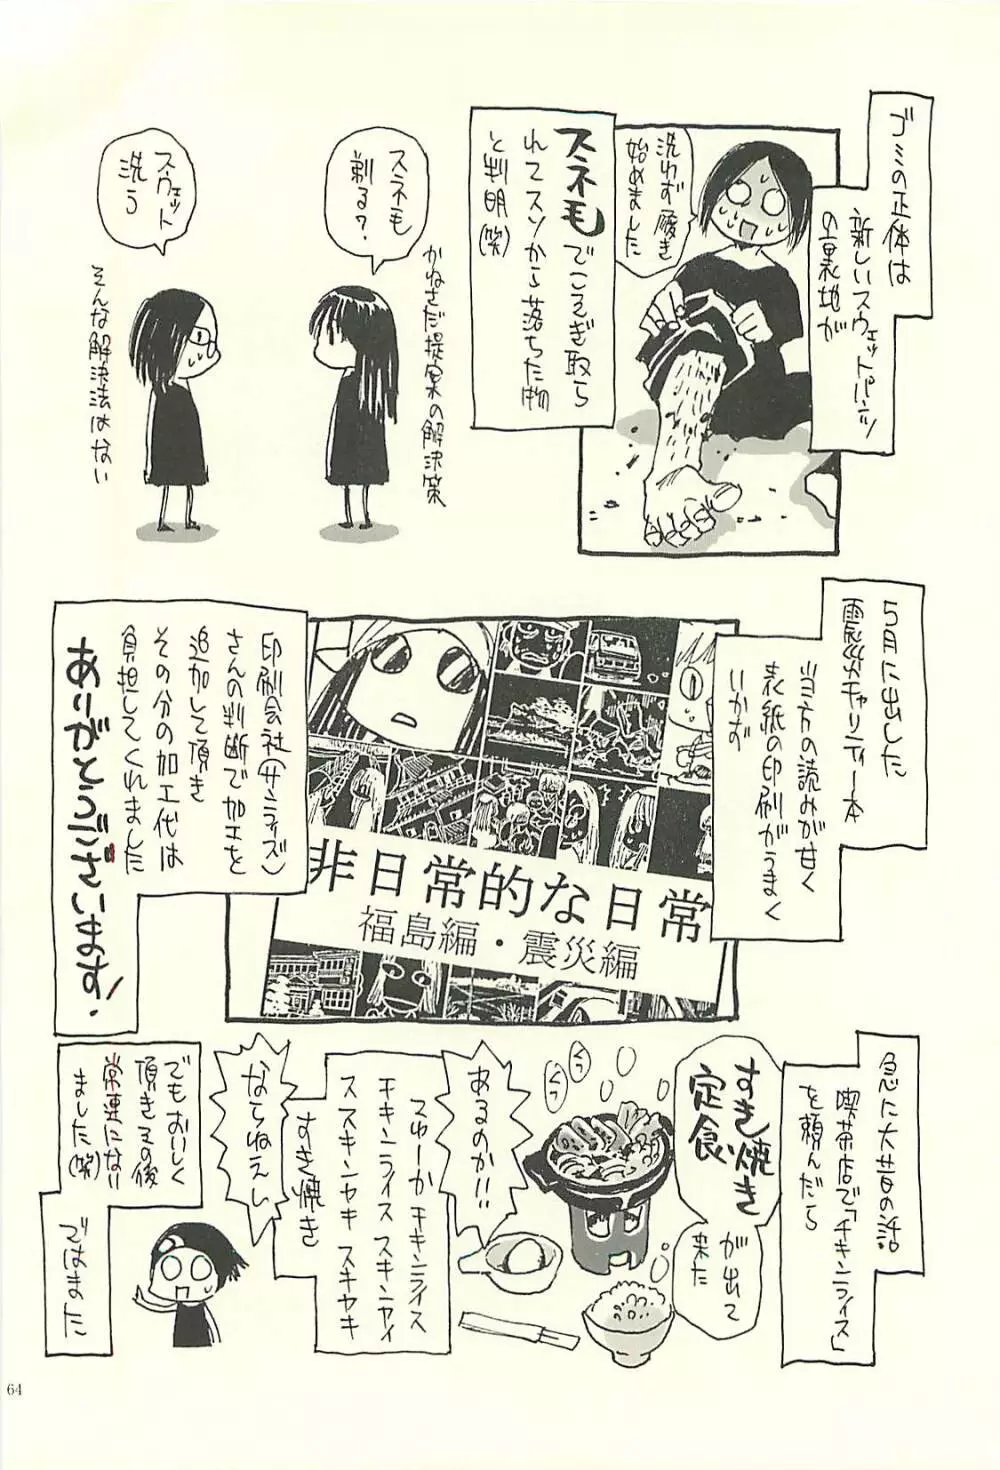 ゴミの正体は
新しいスウェットパンツ
の裏地が
洗わず履き
始めました
スネ毛でこそぎ取ら
れてスソから落ちた物
と判明(笑)
スネ毛
剃る?
かねさだ提案の解決策
スウェット
洗う
そんな解決法はない
5月に出した
震災チャリティー本
当方の読みが甘く
表紙の印刷がうまく
いかず
非日常的な日常
福島編・震災編
印刷会社(サンライズ)
さんの判断で加工を
追加して頂き
その分の加工代は
負担してくれました
ありがとうございます!
急に大昔の話
喫茶店で「チキンライス」
を頼んだら
すき焼き
定食
が出て
来た
ぐつ
ぐつ
あるのか!!
つゅーかチキンライス
チキンライス スキンヤイ
ススキンヤキ スキヤキ
すき焼き
ならねえし
でもおいしく
頂きその後
常連になり
ました(笑)
ではまた
64